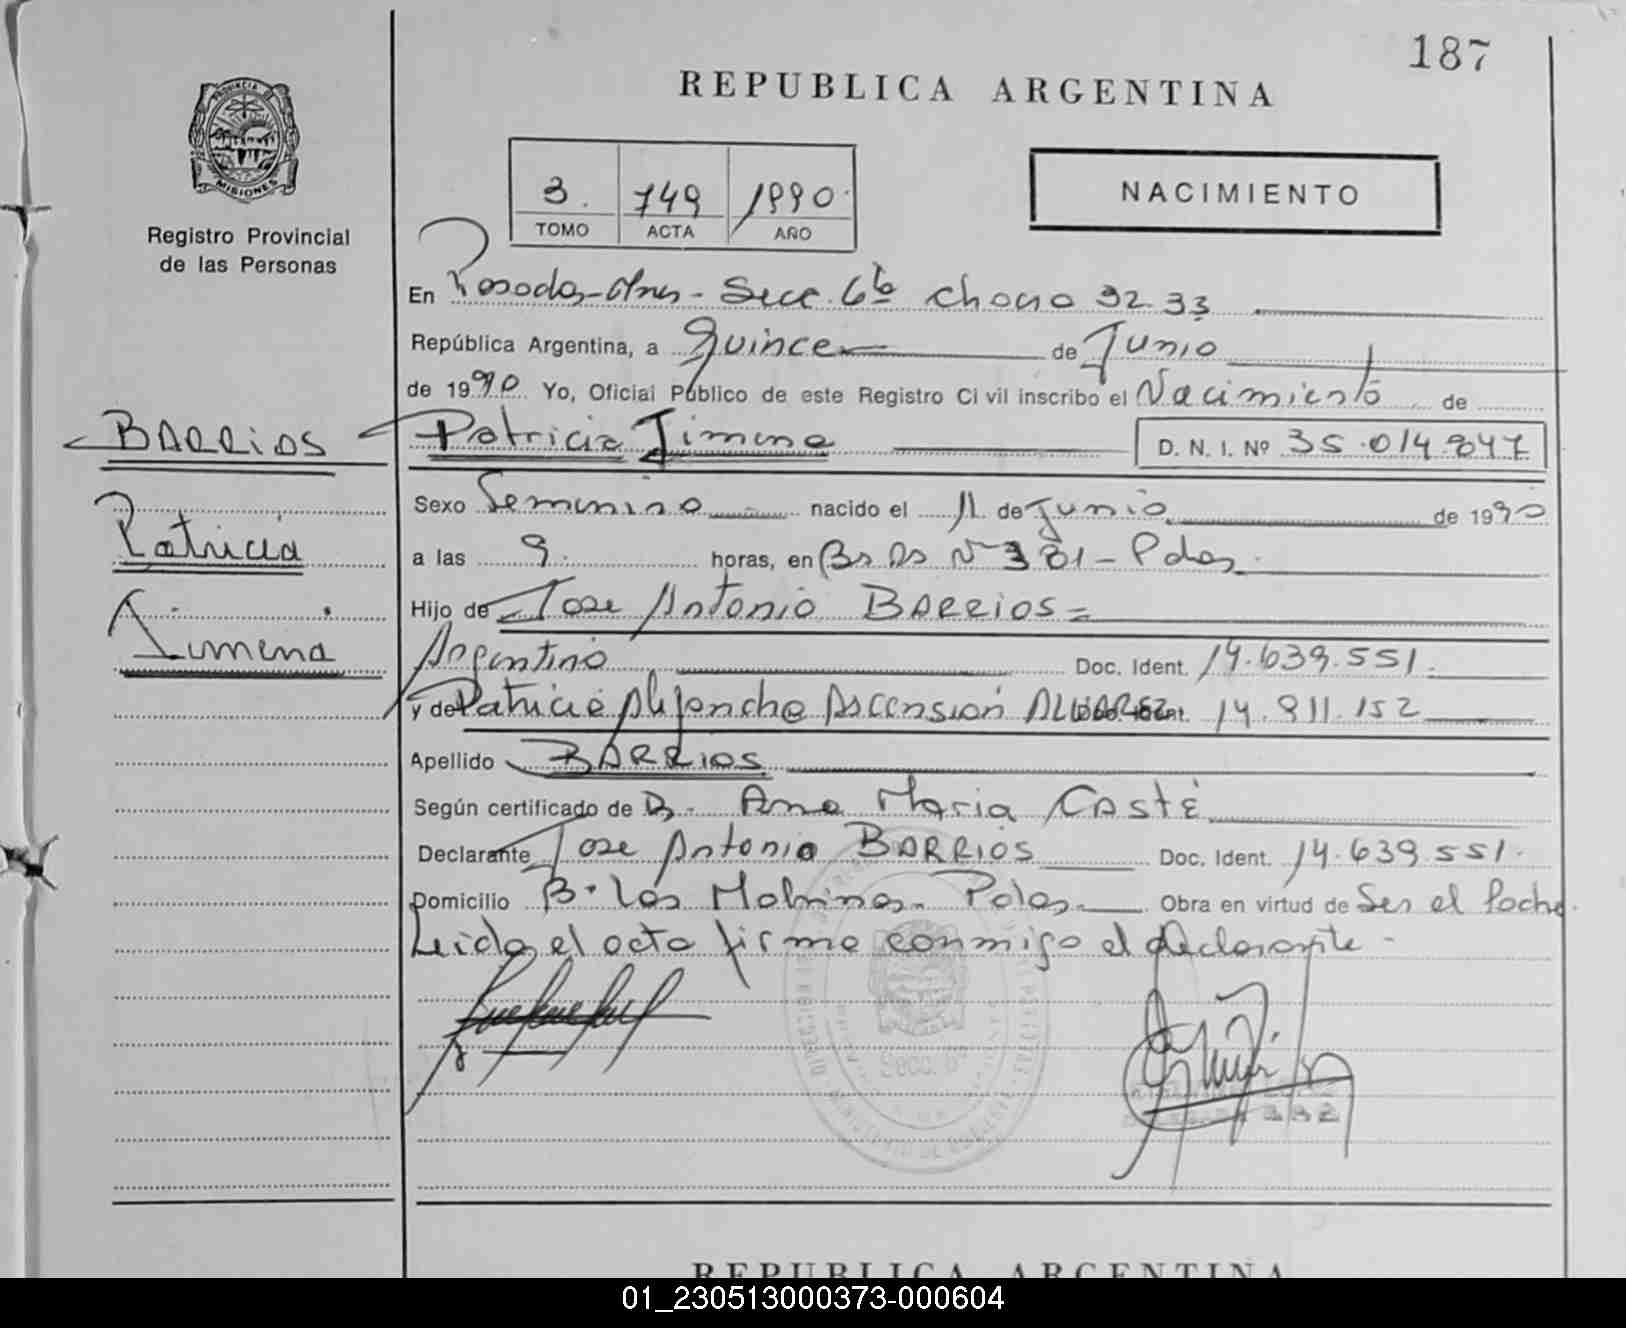 187
REPUBLICA ARGENTINA
PROVINCIA DE
MISIONES
Registro Provincial
de las Personas
3. 749 1990
TOMO ACTA AÑO
NACIMIENTO
En Posadas-Mnes- Secc. 6ta Chaco 32 33
República Argentina, a Quince de Junio
de 1990 Yo, Oficial Público de este Registro Ci vil inscribo el Nacimiento de
BARRIOS
Patricia Jimena D. N. I. Nº 35.014.847
Sexo Femenino nacido el 11 de Junio de 1990
Patricia
a las 9. horas, en Bs As Nº 381- Pdas.
Jimena
Hijo de Jose Antonio BARRIOS=
Argentino Doc. Ident. 14.639.551.
y de Patricia Alejandra Ascensión ALVAREZ Doc. Ident. 14.911.152
Apellido BARRIOS
Según certificado de D. Ana Maria Casté
Declarante Jose Antonio BARRIOS Doc. Ident. 14.639.551.
Domicilio B. Las Malvinas. Pdas. Obra en virtud de Ser el Padre.
Leida el acta firma conmigo el declarante-
Secc. 6
REPUBLICA ARGENTINA
01_230513000373-000604